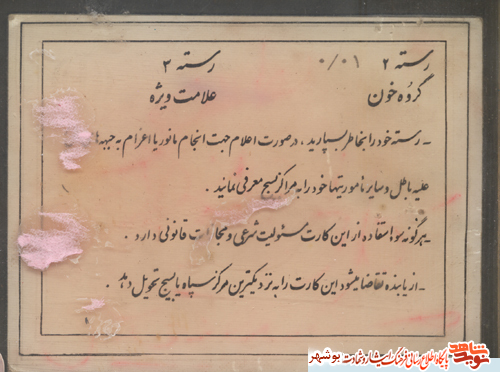 رسته ۲ ۰/۰۱ رسته ۳
گروه خون علامت ویژه
ـ رسته خود را بخاطر بسپارید ، در صورت اعلام جهت انجام مانور یا اعزام به جبهه ها
علیه باطل و سایر ماموریتها خود را به مراکز بسیج معرفی نمائید .
ـ هرگونه سوء استفاده از این کارت مسئولیت شرعی و مجازات قانونی دارد .
ـ از یابنده تقاضا میشود این کارت را به نزدیکترین مرکز سپاه یا بسیج تحویل دهد .
نوید شاهد پایگاه اطلاع رسانی فرهنگ ایثار و شهادت بوشهر